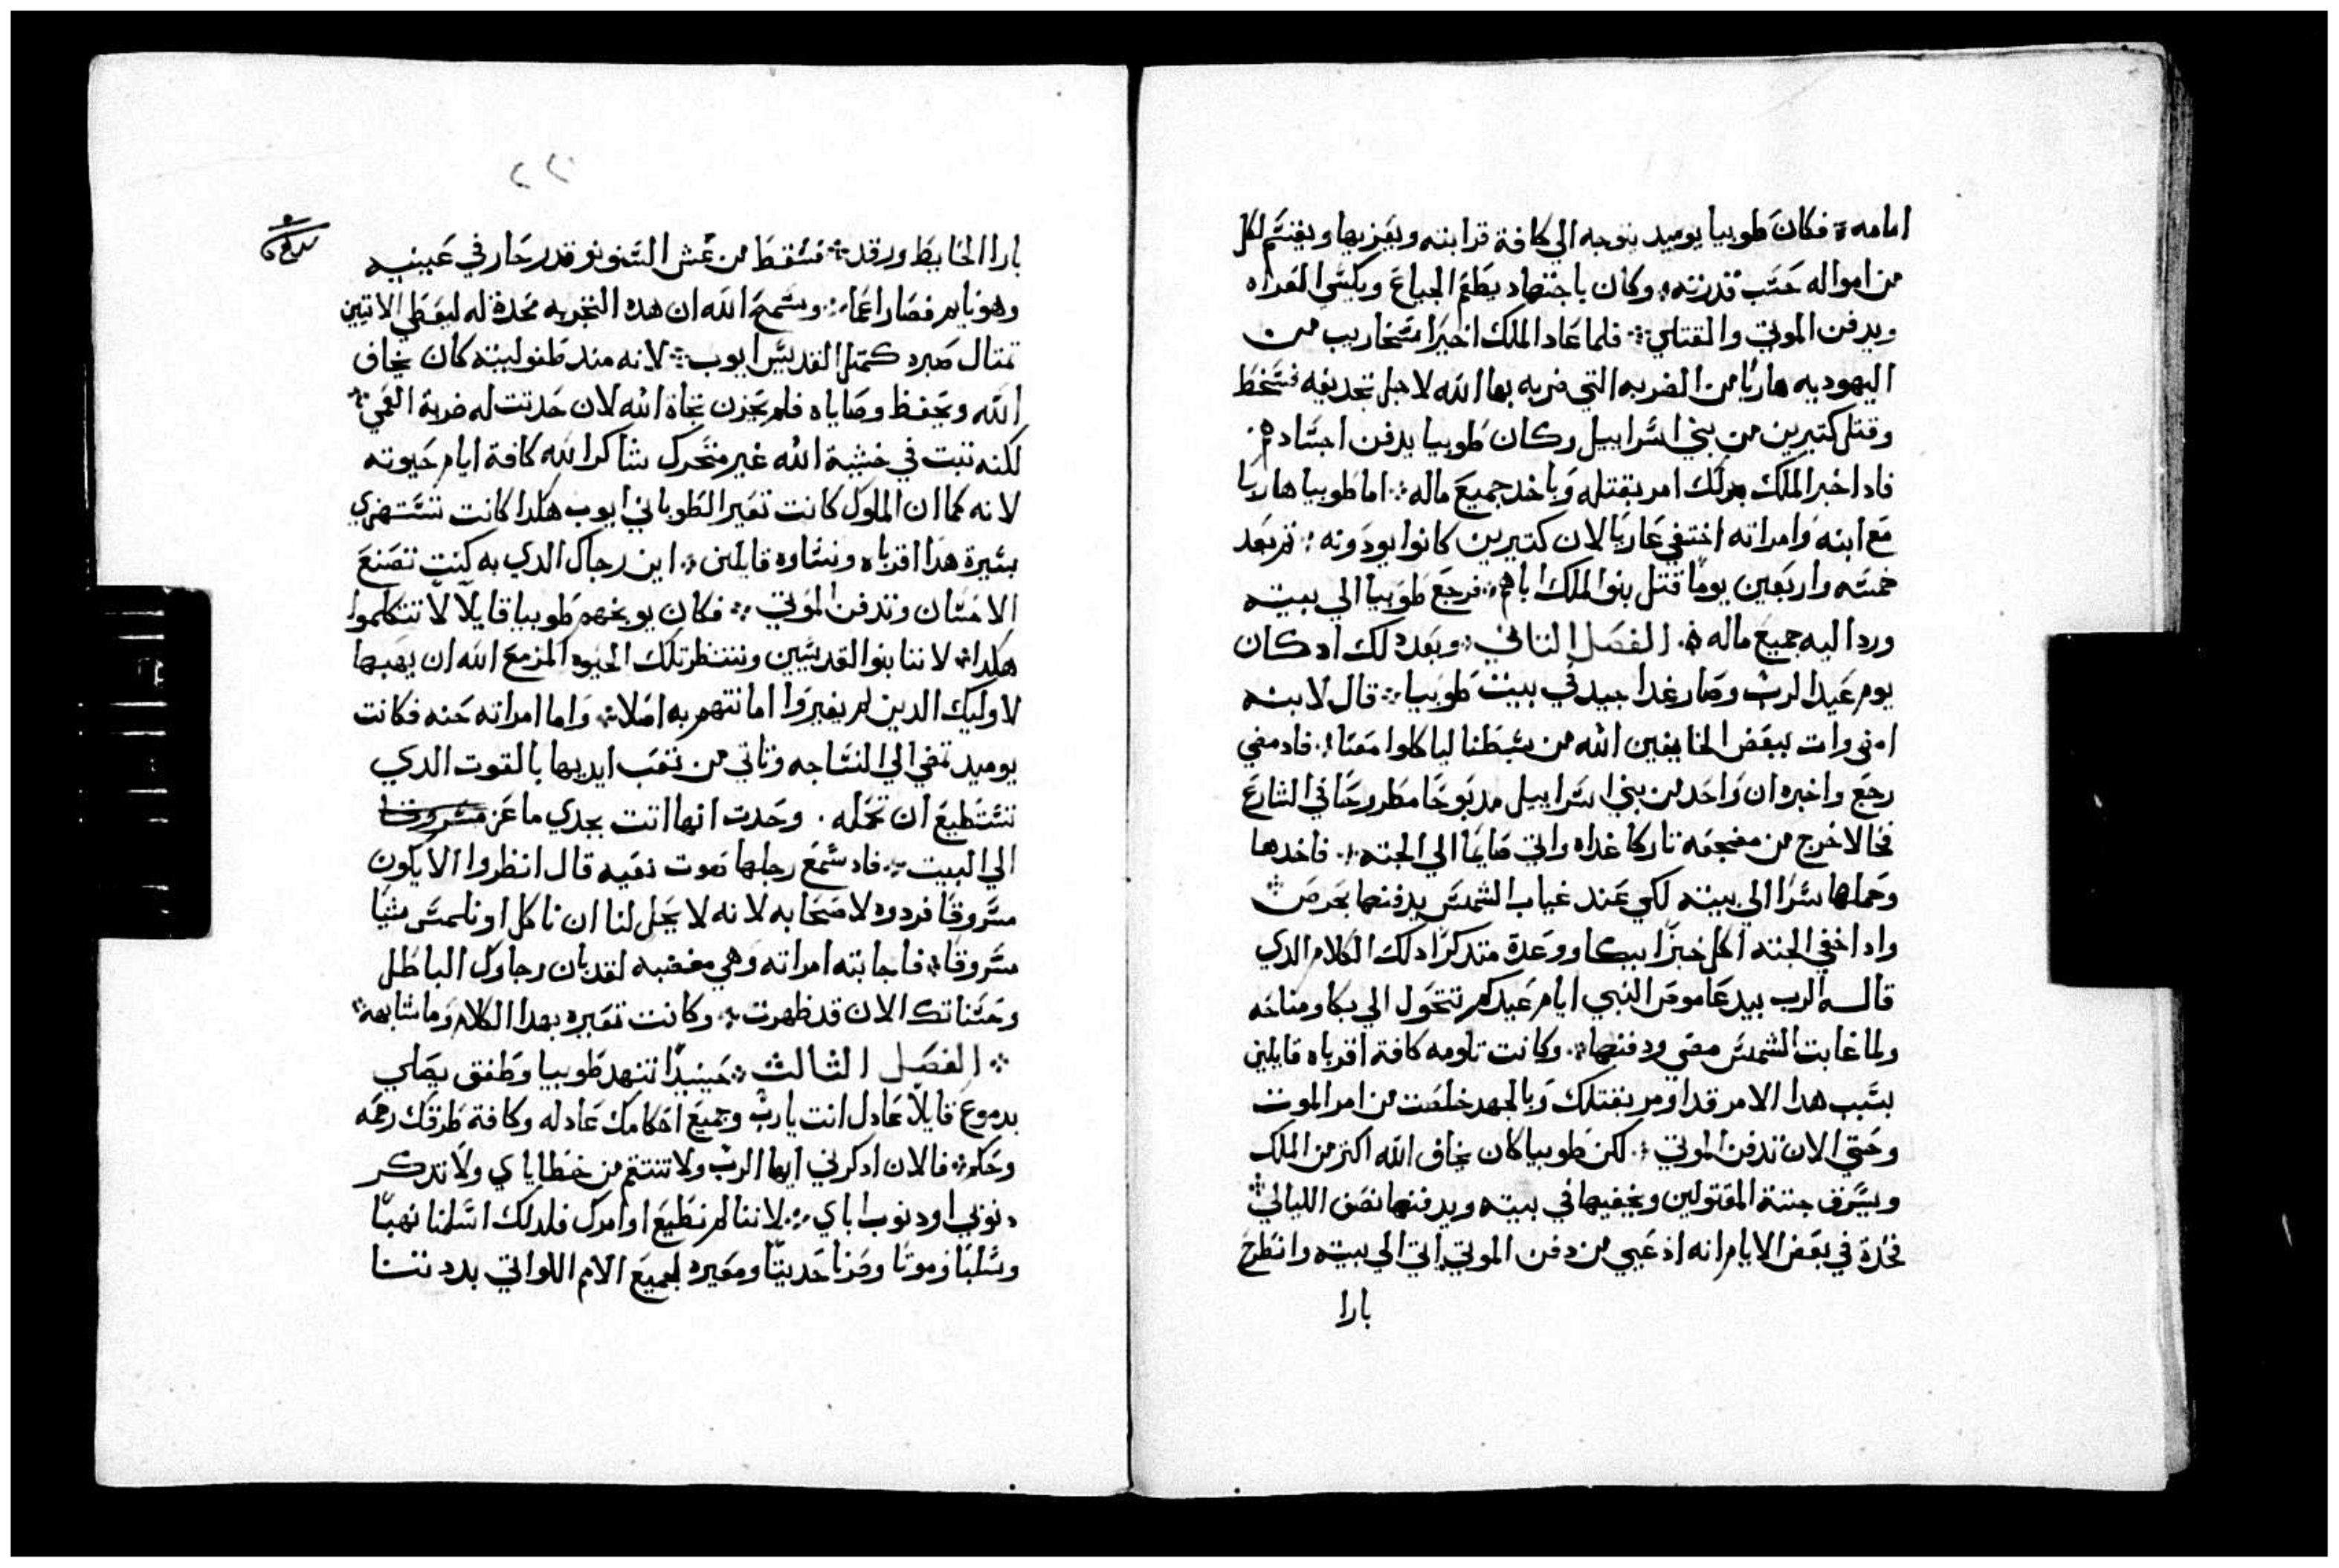 امامه ܀ فكان طوبيا يوميد يتوجه الي كافة قرابته ويعزيها ويقسم لكل
من امواله حسب قدرته ܀ وكان باجتهاد يطعم الجياع ويكسي العراه
ويدفن الموتي والقتلي ܀ فلما عاد الملك اخيرا سنحاريب من
اليهوديه هاربا من الضربه التي ضربه بها الله لاجل تجديفه فسخط
وقتل كتيرين من بني اسراييل وكان طوبيا يدفن اجسادهم ܀
فادا خبر الملك بدلك امر بقتله وباخد جميع ماله ܀ اما طوبيا هاربا
مع ابنه وامراته اختفي عاريا لان كتيرين كانوا يودونه ܀ تم بعد
خمسه واربعين يوما قتل بنوا الملك اباهم ܀ فرجع طوبيا الي بيته
ورد اليه جميع ماله ܀ الفصل التاني ܀ وبعد دلك اد كان
يوم عيد الرب وصار غدا جيد في بيت طوبيا ܀ قال لابنه
امض وات ببعض الخايفين الله من سبطنا لياكلوا معنا ܀ فاد مضي
رجع واخبره ان واحد من بني اسراييل مدبوحا مطروحا في الشارع
فحالا خرج من مضجعه تاركا غداه واتي صايما الي الجته ܀ فاخدها
وحملها سرا الي بيته لكي عند غياب الشمس يدفنها بحرص ܀
واد اخفي الجته اكل خبزا ببكا ورعدة متدكرا دلك الكلام الدي
قاله الرب بيد عاموص النبي ايام عيدكم تتحول الي بكا ومناحه
ولما غابت الشمس مضي ودفنها ܀ وكانت تلومه كافة اقرباه قايلين
بسبب هدا الامر قد اومر بقتلك وبالجهد خلصت من امر الموت
وحتي الان تدفن الموتي ܀ لكن طوبيا كان يخاف الله اكتر من الملك
ويسرق جتة المقتولين ويخفيها في بيته ويدفنها نصف الليالي ܀
فحدت في بعض الايام انه اذ عيي من دفن الموتي اتي الي بيته وانطرح
بازا
٢٢
بازا الحايط ورقد ܀ فسقط من عش السنونو قدر حار في عينيه
وهو نايم فصار اعما ܀ وسمح الله ان هده التجربه تحدت له ليعطي الاتيين
تمتال صبره كمتل القديس ايوب ܀ لانه مند طفوليته كان يخاف
الله ويحفظ وصاياه فلم يحزن تجاة الله لان حدتت له ضربة العمي ܀
لكنه تبت في خشية الله غير متحرك شاكرا لله كافة ايام حيوته
لانه كما ان الملوك كانت تعير الطوباني ايوب هكدا كانت تستهزي
بسيرة هدا اقرباه ونساوه قايلين ܀ اين رجاك الدي به كنت تصنع
الاحسان وتدفن الموتي ܀ فكان يوبخهم طوبيا قايلا لا تتكلموا
هكدا ܀ لاننا بنوا القديسين وننتظر تلك الحيوه المزمع الله ان يهبها
لاوليك الدين لم يغيروا امانتهم به اصلا ܀ واما امراته حنه فكانت
يوميد تمضي الي النساجه وتاتي من تعب ايديها بالقوت الدي
تستطيع ان تحمله . وحدت انها اتت بجدي ماعز مسروقا
الي البيت ܀ فاد سمع رجلها صوت نعيه قال انظروا الا يكون
مسروقا فردوه لاصحابه لانه لا يحل لنا ان ناكل او نلمس شيا
مسروقا ܀ فاجابته امراته وهي مغضبه لقد بان رجاوك الباطل
وحسناتك الان قد ظهرت ܀ وكانت تعيره بهدا الكلام وما شابهه ܀
܀ الفصل التالت ܀ حينيدا تنهد طوبيا وطفق يصلي
بدموع قايلا عادل انت يا رب وجميع احكامك عادله وكافة طرقك رحمه
وحكم ܀ فالان ادكرني ايها الرب ولا تنتقم من خطاياي ولا تدكر
دنوبي او دنوب اباي ܀ لاننا لم نطيع اوامرك فلدلك اسلمنا نهبا
وسلبا وموتا وحديتا ومعيره لجميع الامم اللواتي بددتنا